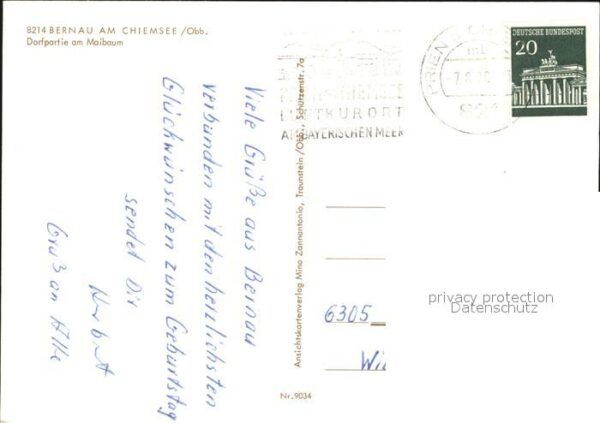 8214 BERNAU AM CHIEMSEE / Obb.
Dorfpartie am Maibaum
Viele Grüße aus Bernau
verbunden mit den herzlichsten
Glückwünschen zum Geburtstag
sendet Dir
Norbert
Gruß an Alle
Ansichtskartenverlag Mino Zannantonio, Traunstein/Obb., Schützenstr. 7a
LUFTKURORT
AM BAYERISCHEN MEER
PRIEN
DEUTSCHE BUNDESPOST
20
6305
privacy protection
Datenschutz
Nr. 9034